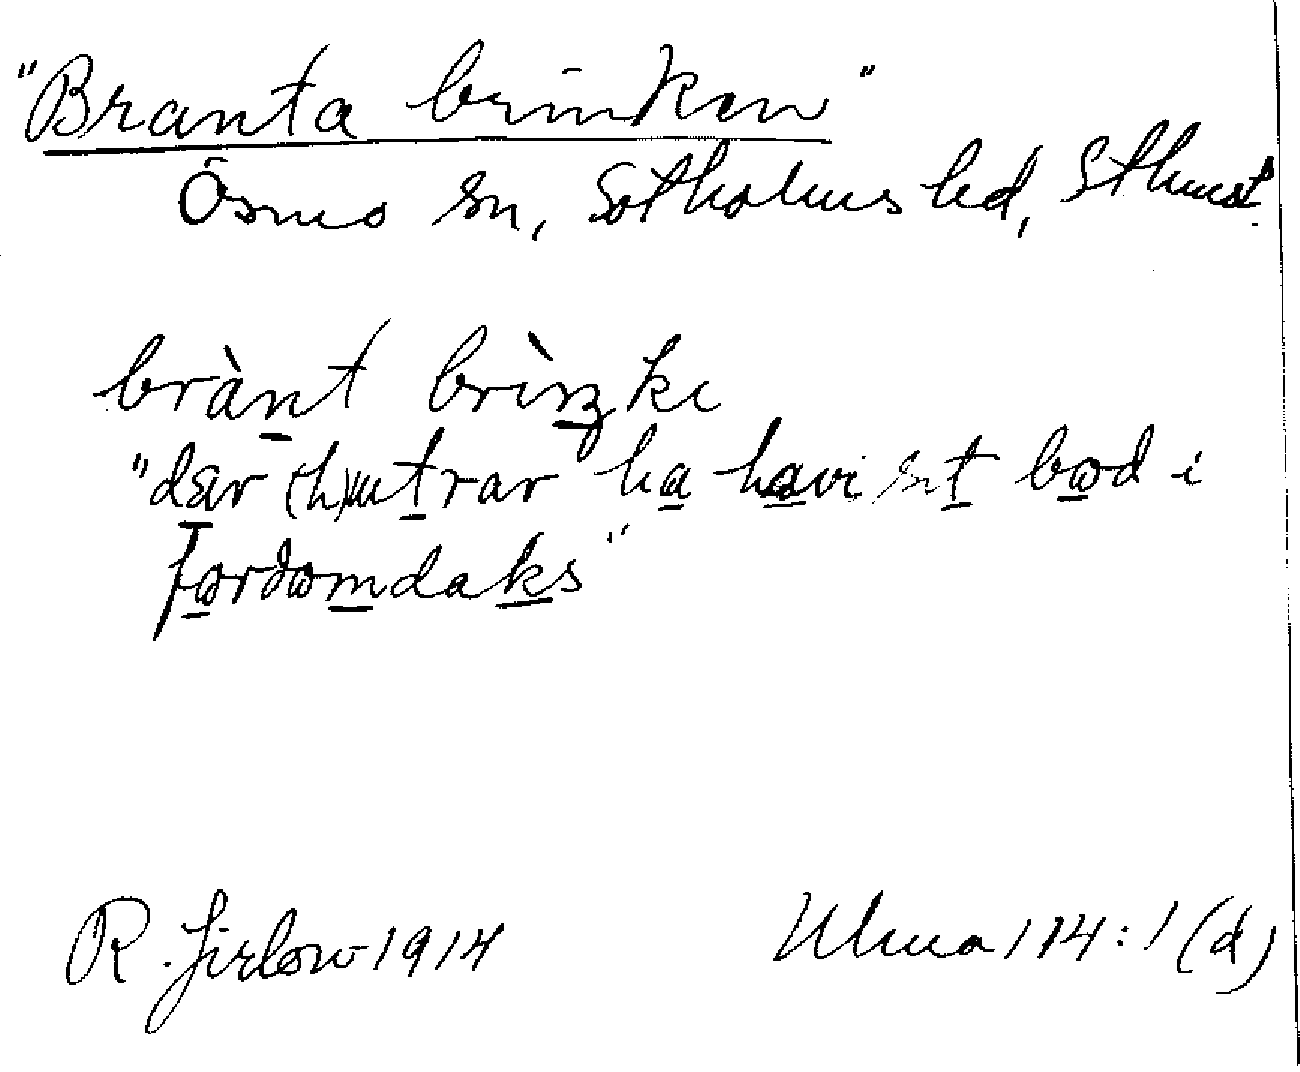 "Branta brinken"
Ösmo sn, Sotholms hd, Sthmst.
brànt brìŋki
"dær (h)utrar ha havi sit bod i
fordomdaks"
R. Jirlow 1914
Uluma 114:1 (d)